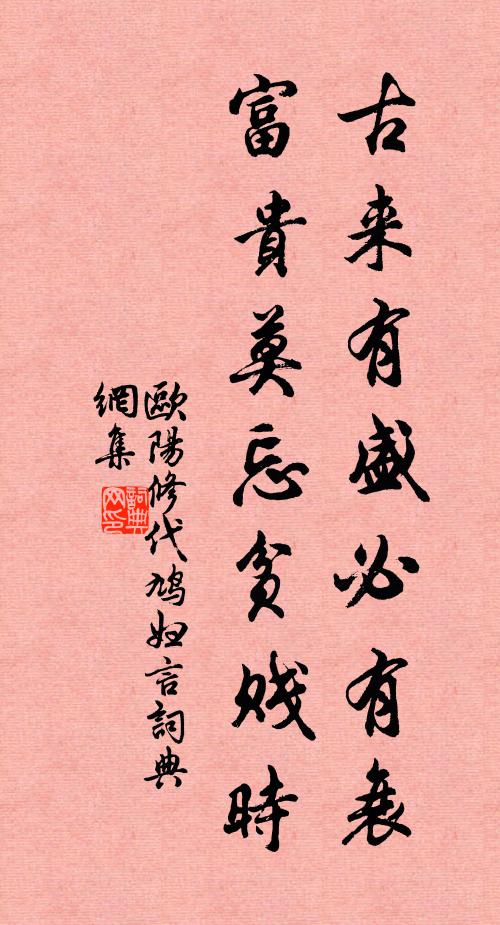 古来有盛必有衰
富貴莫忘貧賤時
歐陽修代鳩婦言詞典
網集
詞典
网印